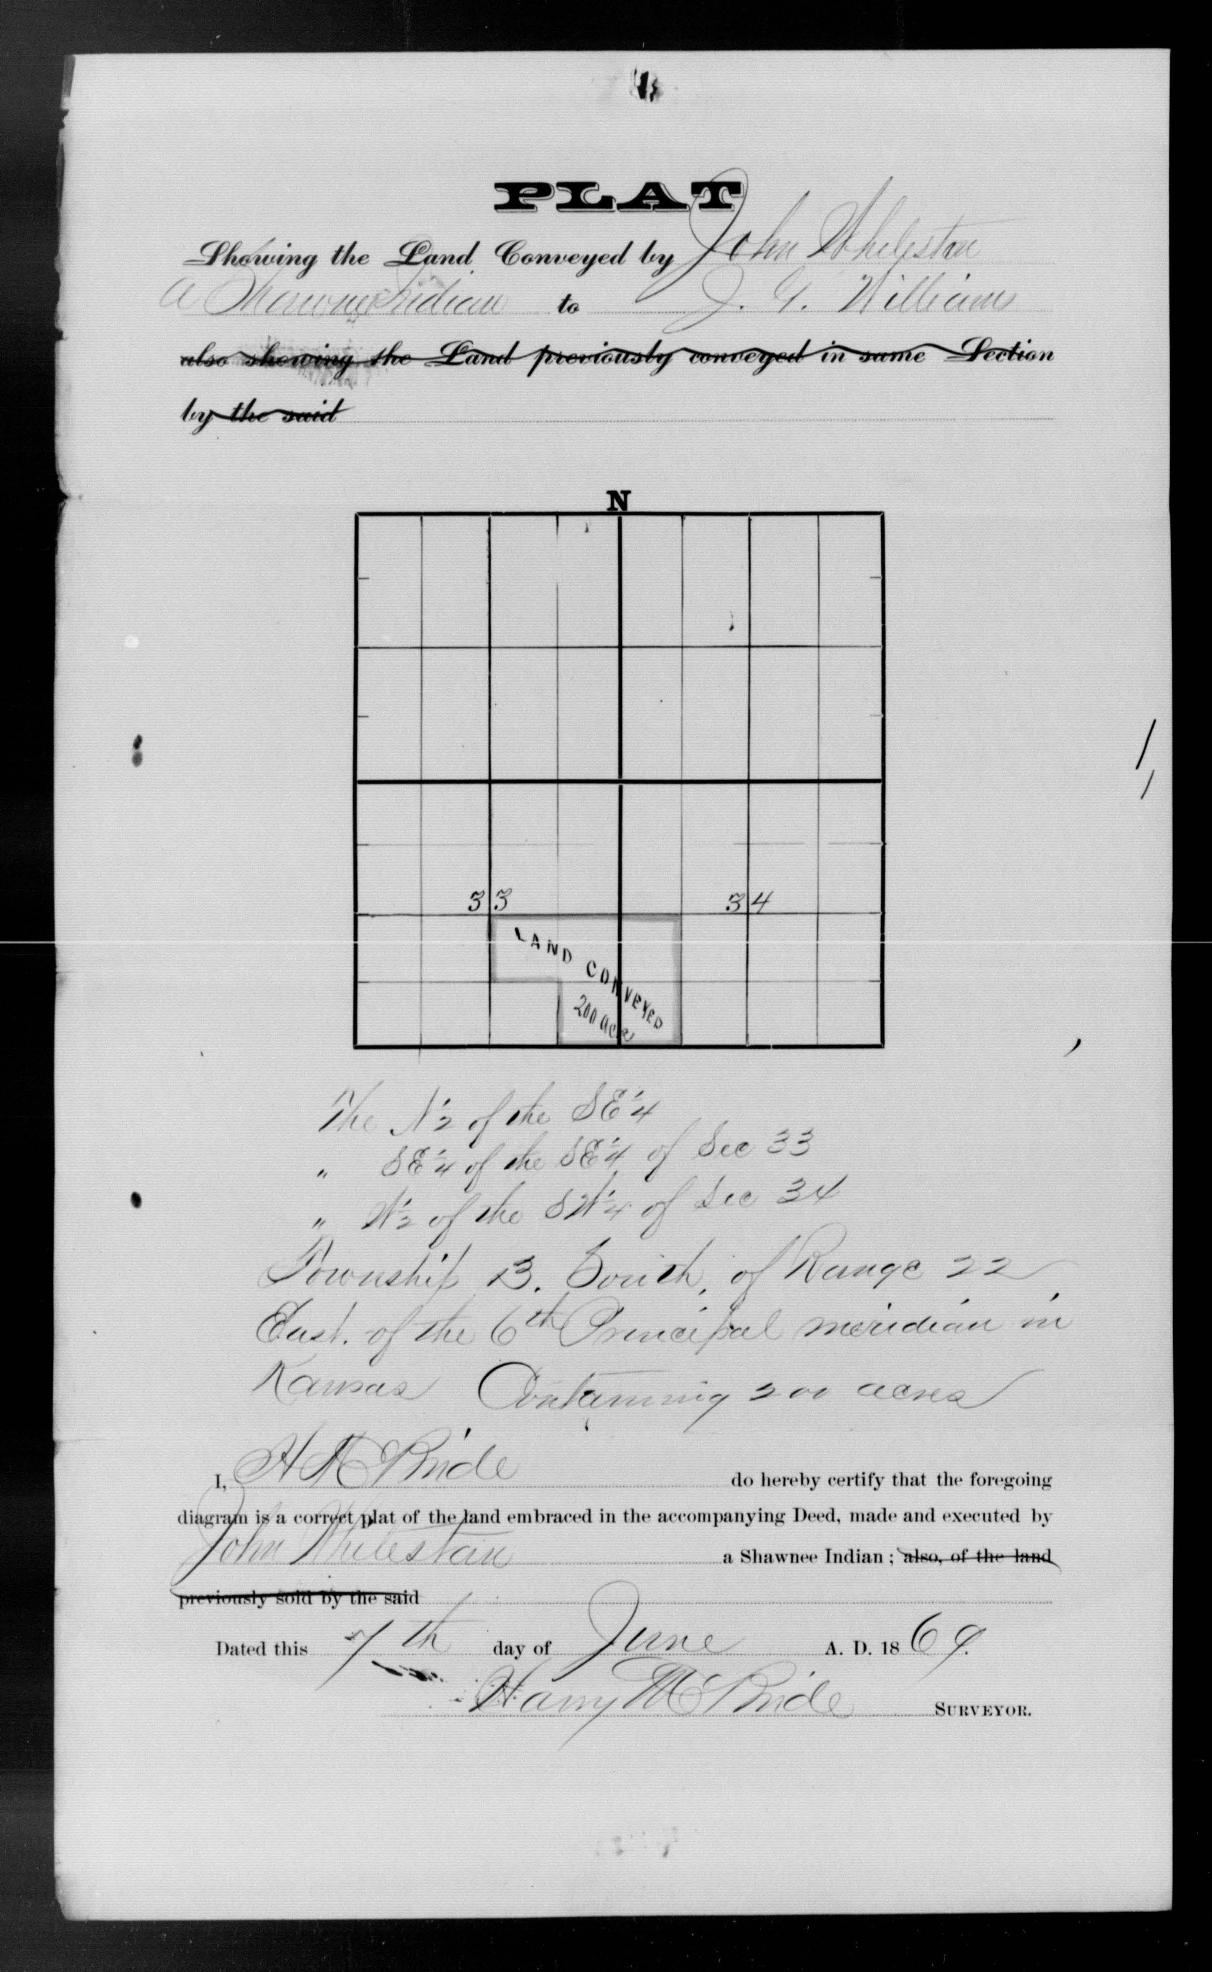 PLAT
Showing the Land Conveyed by John Whilestan
a Shawnee Indian to J. G. Williams
also showing the Land previously conveyed in same Section
by the said
N
33 34
LAND CONVEYED
200 acre
The N ½ of the SE ¼
" SE ¼ of the SE ¼ of Sec 33
" W ½ of the SW ¼ of Sec 34
Township 13. South, of Range 22
East. of the 6th Principal meridian in
Kansas Containing 200 acres
I, H McBride do hereby certify that the foregoing
diagram is a correct plat of the land embraced in the accompanying Deed, made and executed by
John Whilestan a Shawnee Indian; also, of the land
previously sold by the said
Dated this 7th day of June A. D. 1869.
Harry McBride SURVEYOR.